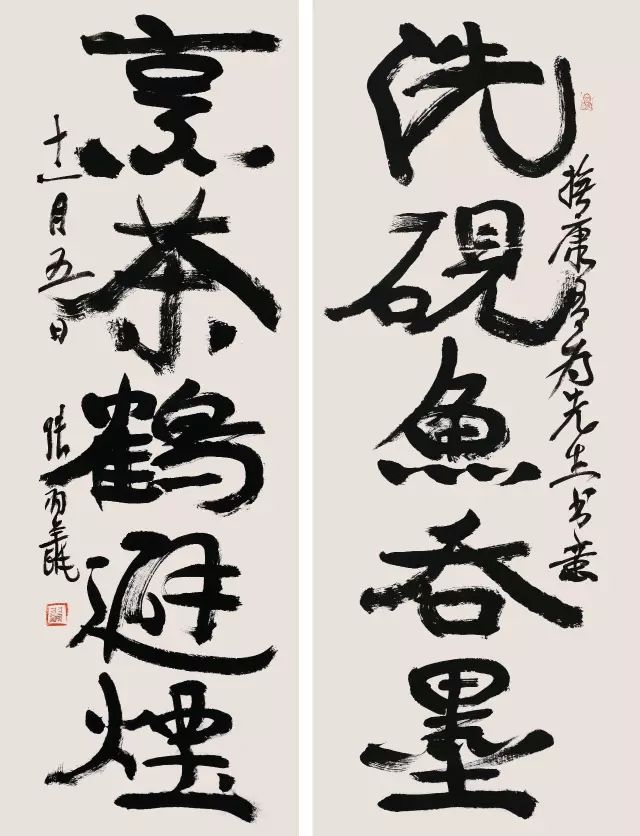 洗硯魚吞墨
康有为先生书意
烹茶鶴避煙
十一月五日
張羽